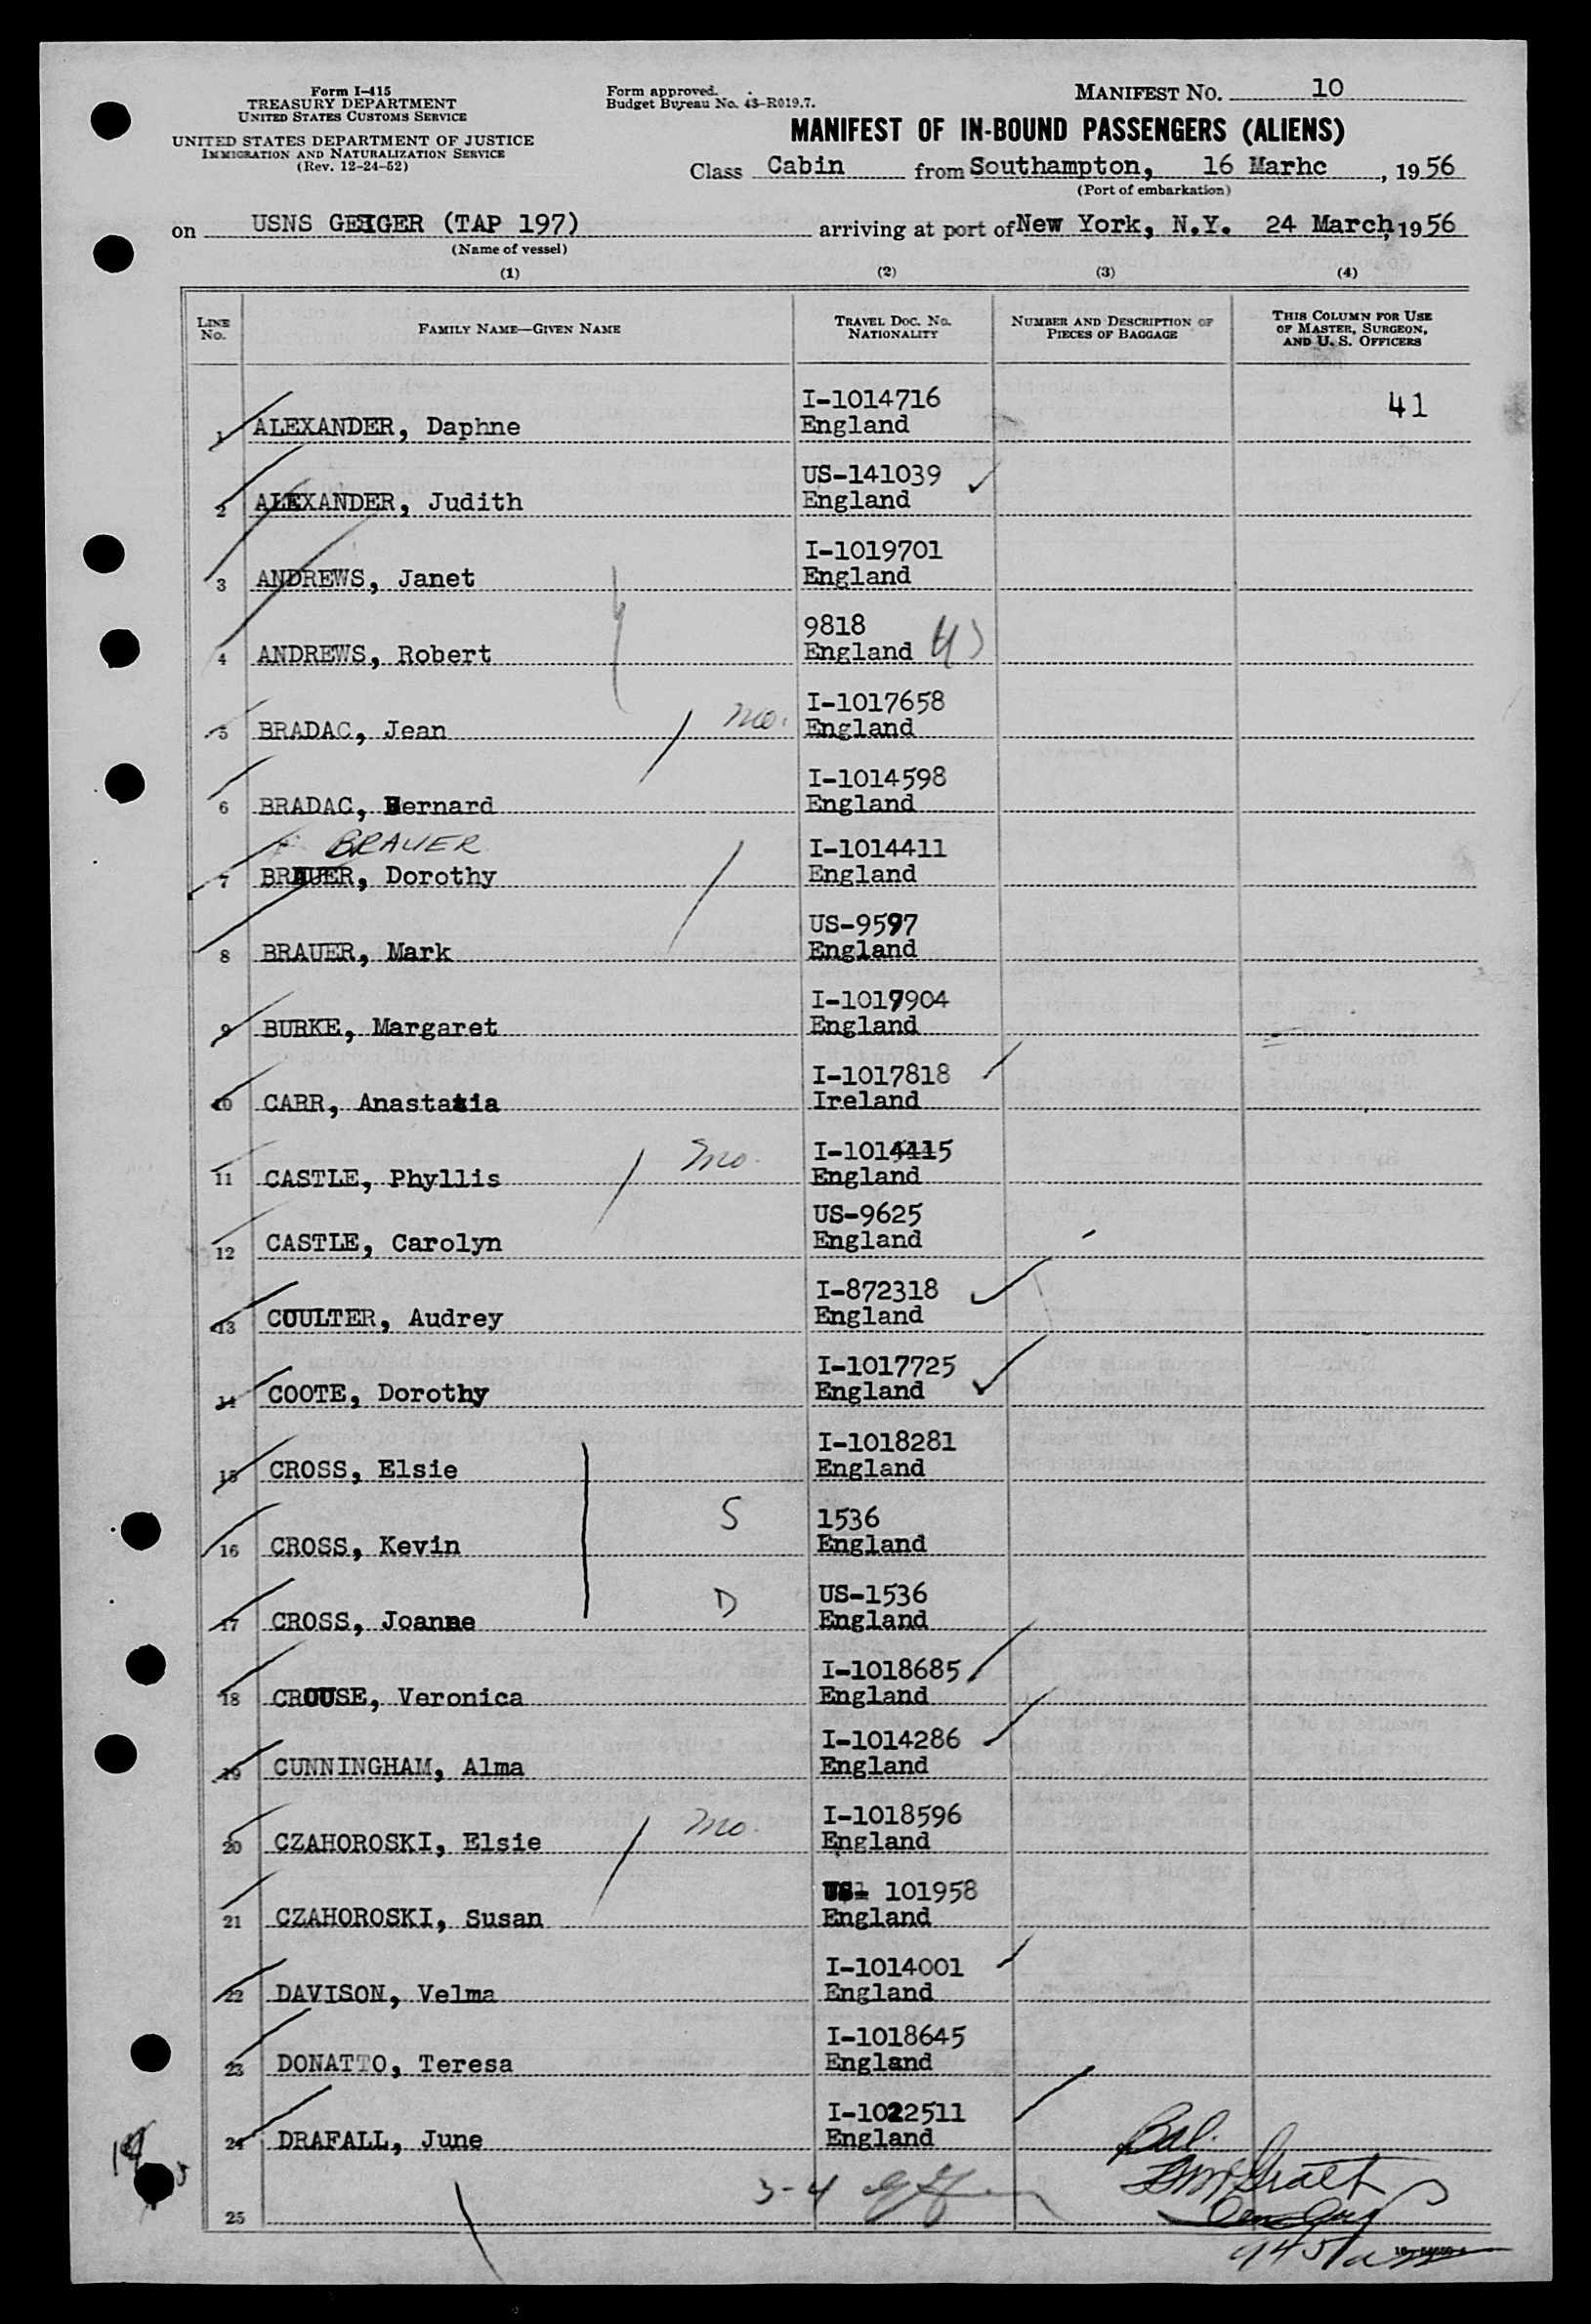 Form I-415
TREASURY DEPARTMENT
UNITED STATES CUSTOMS SERVICE
UNITED STATES DEPARTMENT OF JUSTICE
IMMIGRATION AND NATURALIZATION SERVICE
(Rev. 12-24-52)
Form approved.
Budget Bureau No. 43-R019.7.
MANIFEST NO. 10
MANIFEST OF IN-BOUND PASSENGERS (ALIENS)
Class Cabin from Southampton, 16 Marhc, 1956
(Port of embarkation)
on USNS GEIGER (TAP 197) arriving at port of New York, N.Y. 24 March, 1956
(Name of vessel)
(1) (2) (3) (4)
LINE NO.
FAMILY NAME—GIVEN NAME
TRAVEL DOC. NO.
NATIONALITY
NUMBER AND DESCRIPTION OF
PIECES OF BAGGAGE
THIS COLUMN FOR USE
OF MASTER, SURGEON,
AND U. S. OFFICERS
I-1014716 41
1 ALEXANDER, Daphne England
US-141039
2 ALEXANDER, Judith England
I-1019701
3 ANDREWS, Janet England
9818
4 ANDREWS, Robert England
I-1017658
5 BRADAC, Jean mo. England
I-1014598
6 BRADAC, Bernard England
BRAUER I-1014411
7 BRAUER, Dorothy England
US-9597
8 BRAUER, Mark England
I-1017904
9 BURKE, Margaret England
I-1017818
10 CARR, Anastasia Ireland
I-1014415
11 CASTLE, Phyllis mo. England
US-9625
12 CASTLE, Carolyn England
I-872318
13 COULTER, Audrey England
I-1017725
14 COOTE, Dorothy England
I-1018281
15 CROSS, Elsie England
S 1536
16 CROSS, Kevin England
D US-1536
17 CROSS, Joanne England
I-1018685
18 CROUSE, Veronica England
I-1014286
19 CUNNINGHAM, Alma England
I-1018596
20 CZAHOROSKI, Elsie mo. England
101958
21 CZAHOROSKI, Susan England
I-1014001
22 DAVISON, Velma England
I-1018645
23 DONATTO, Teresa England
I-1022511
24 DRAFALL, June England
Bal.
3-4
25